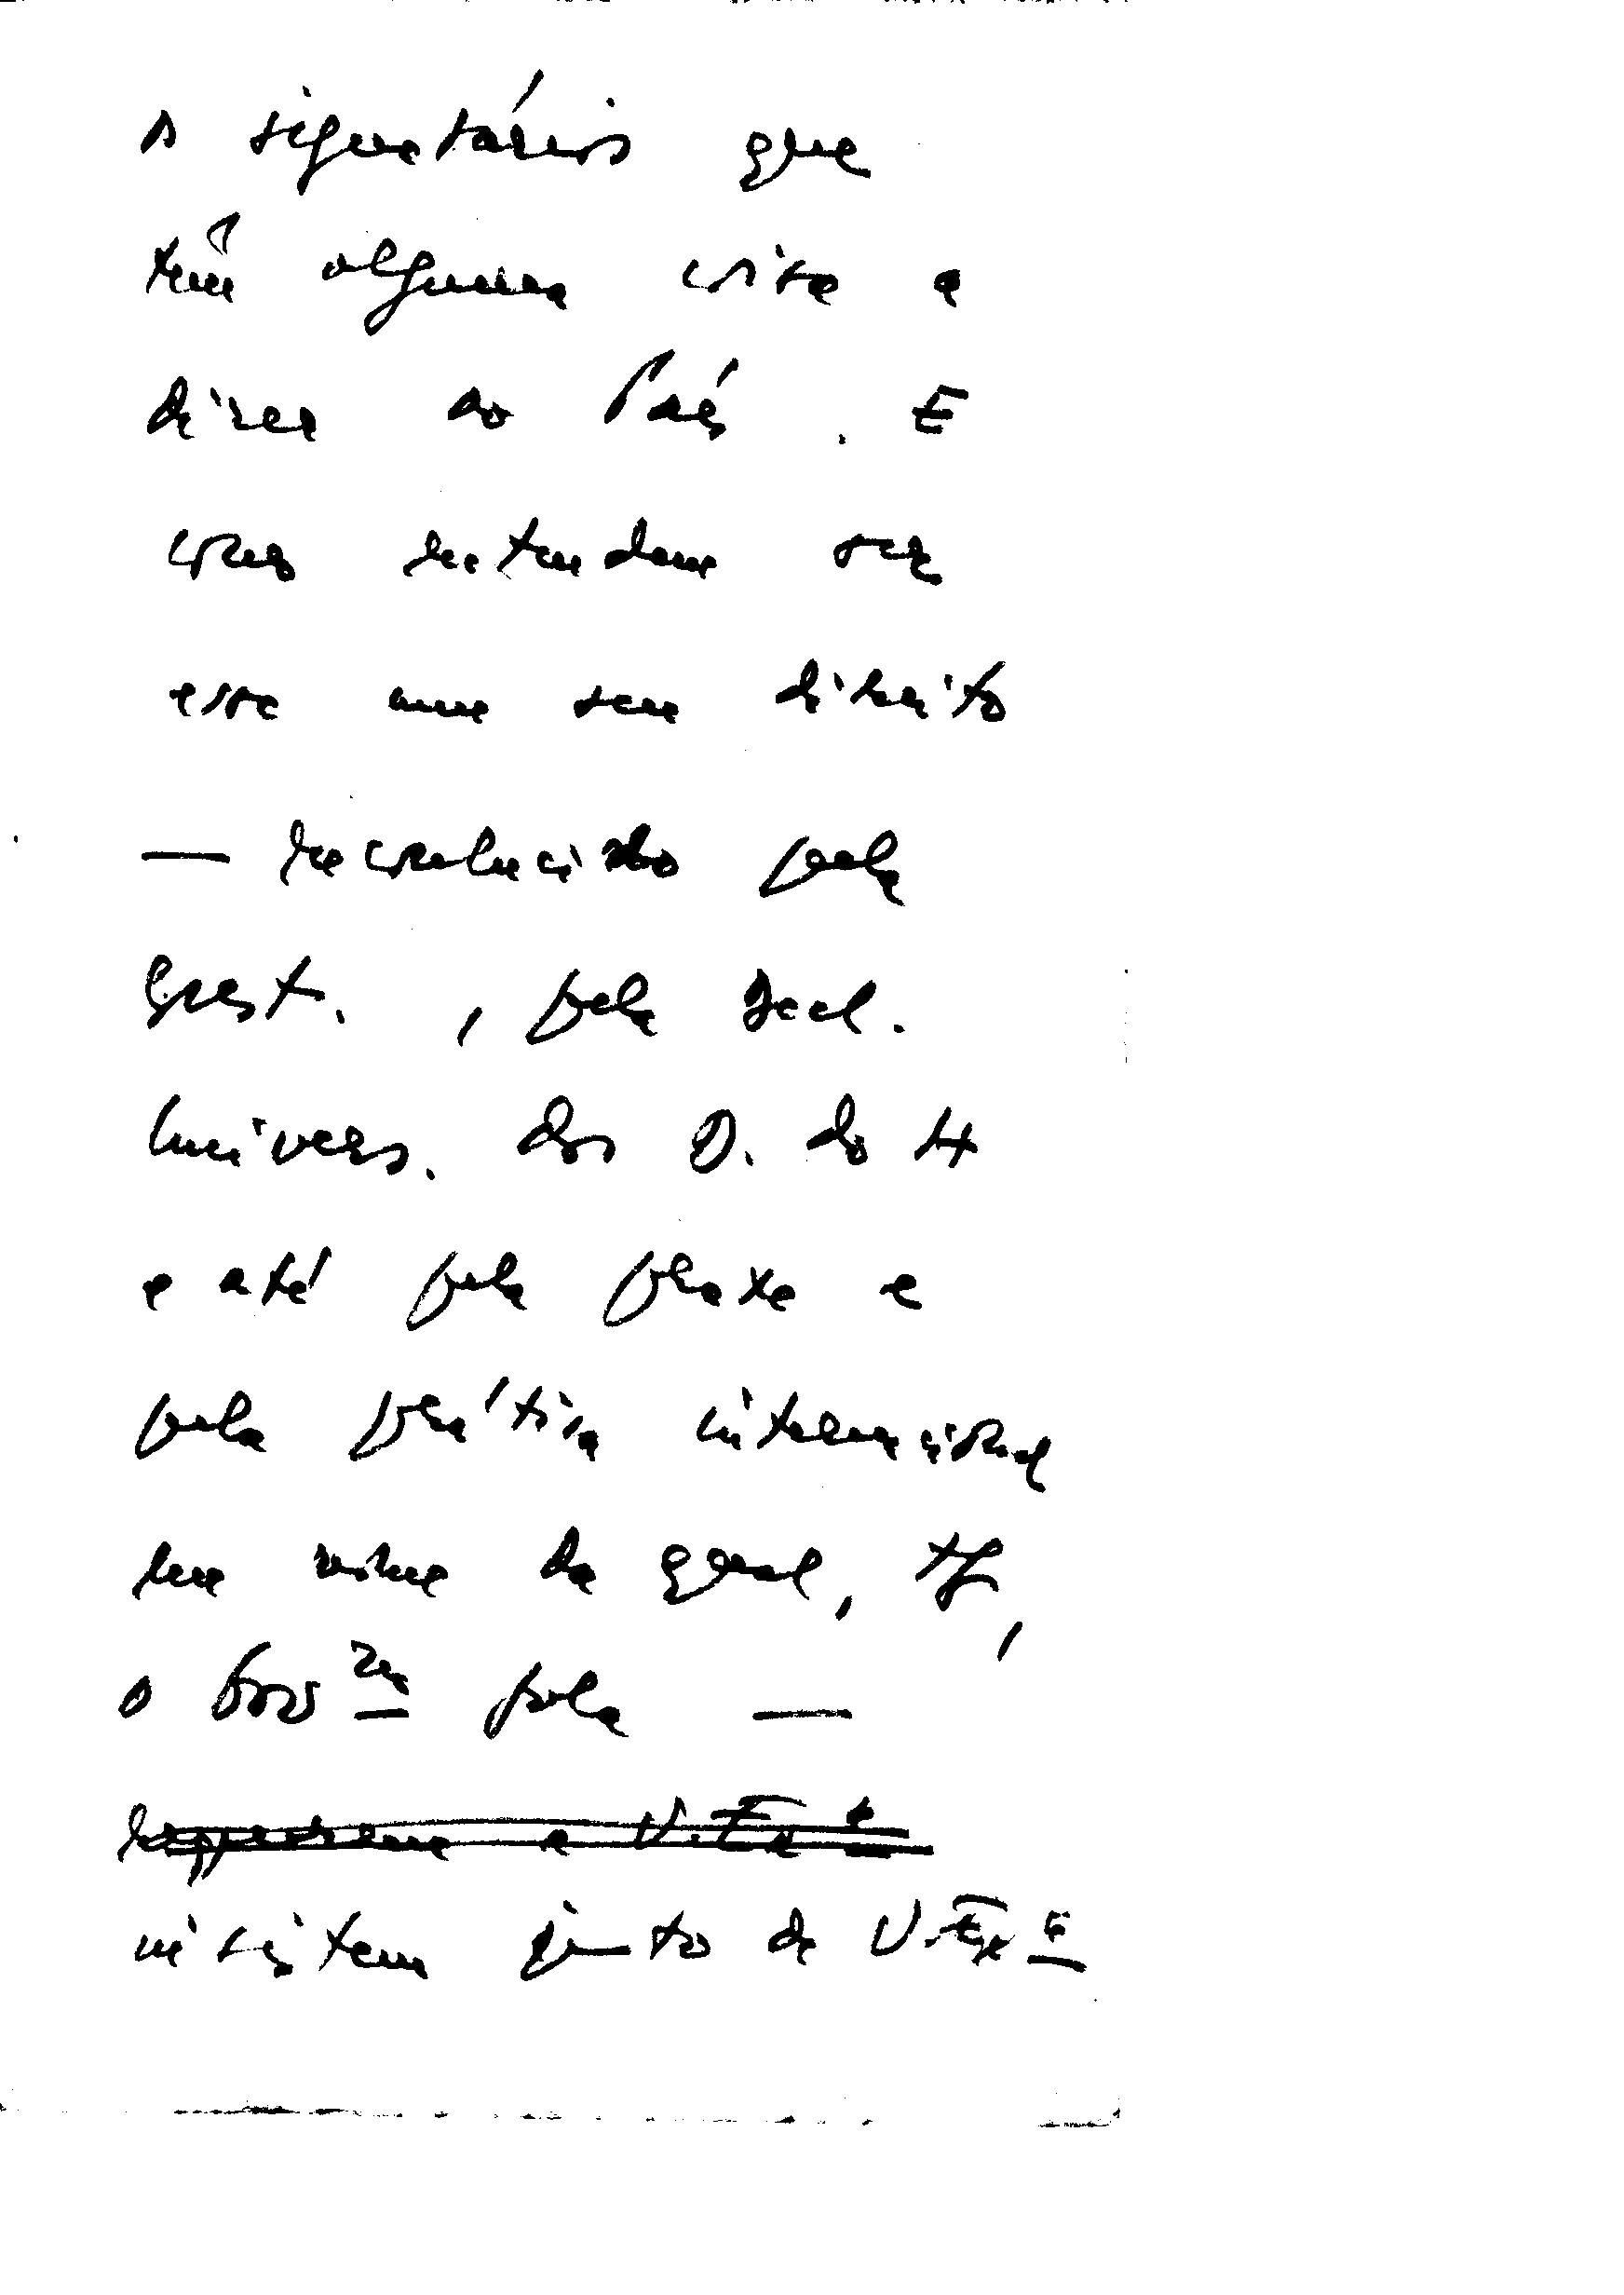 os signatários que
têm alguma coisa a
dizer ao País. E
como entendem ser
esse um seu direito
— reconhecido pela
Const., pela Decl.
Univers. dos D. do H
e até pela praxe e
pela prática internacional
em nome da qual,
o Gov pela —
requerem a V. Exª
insistem junto de V. Exª